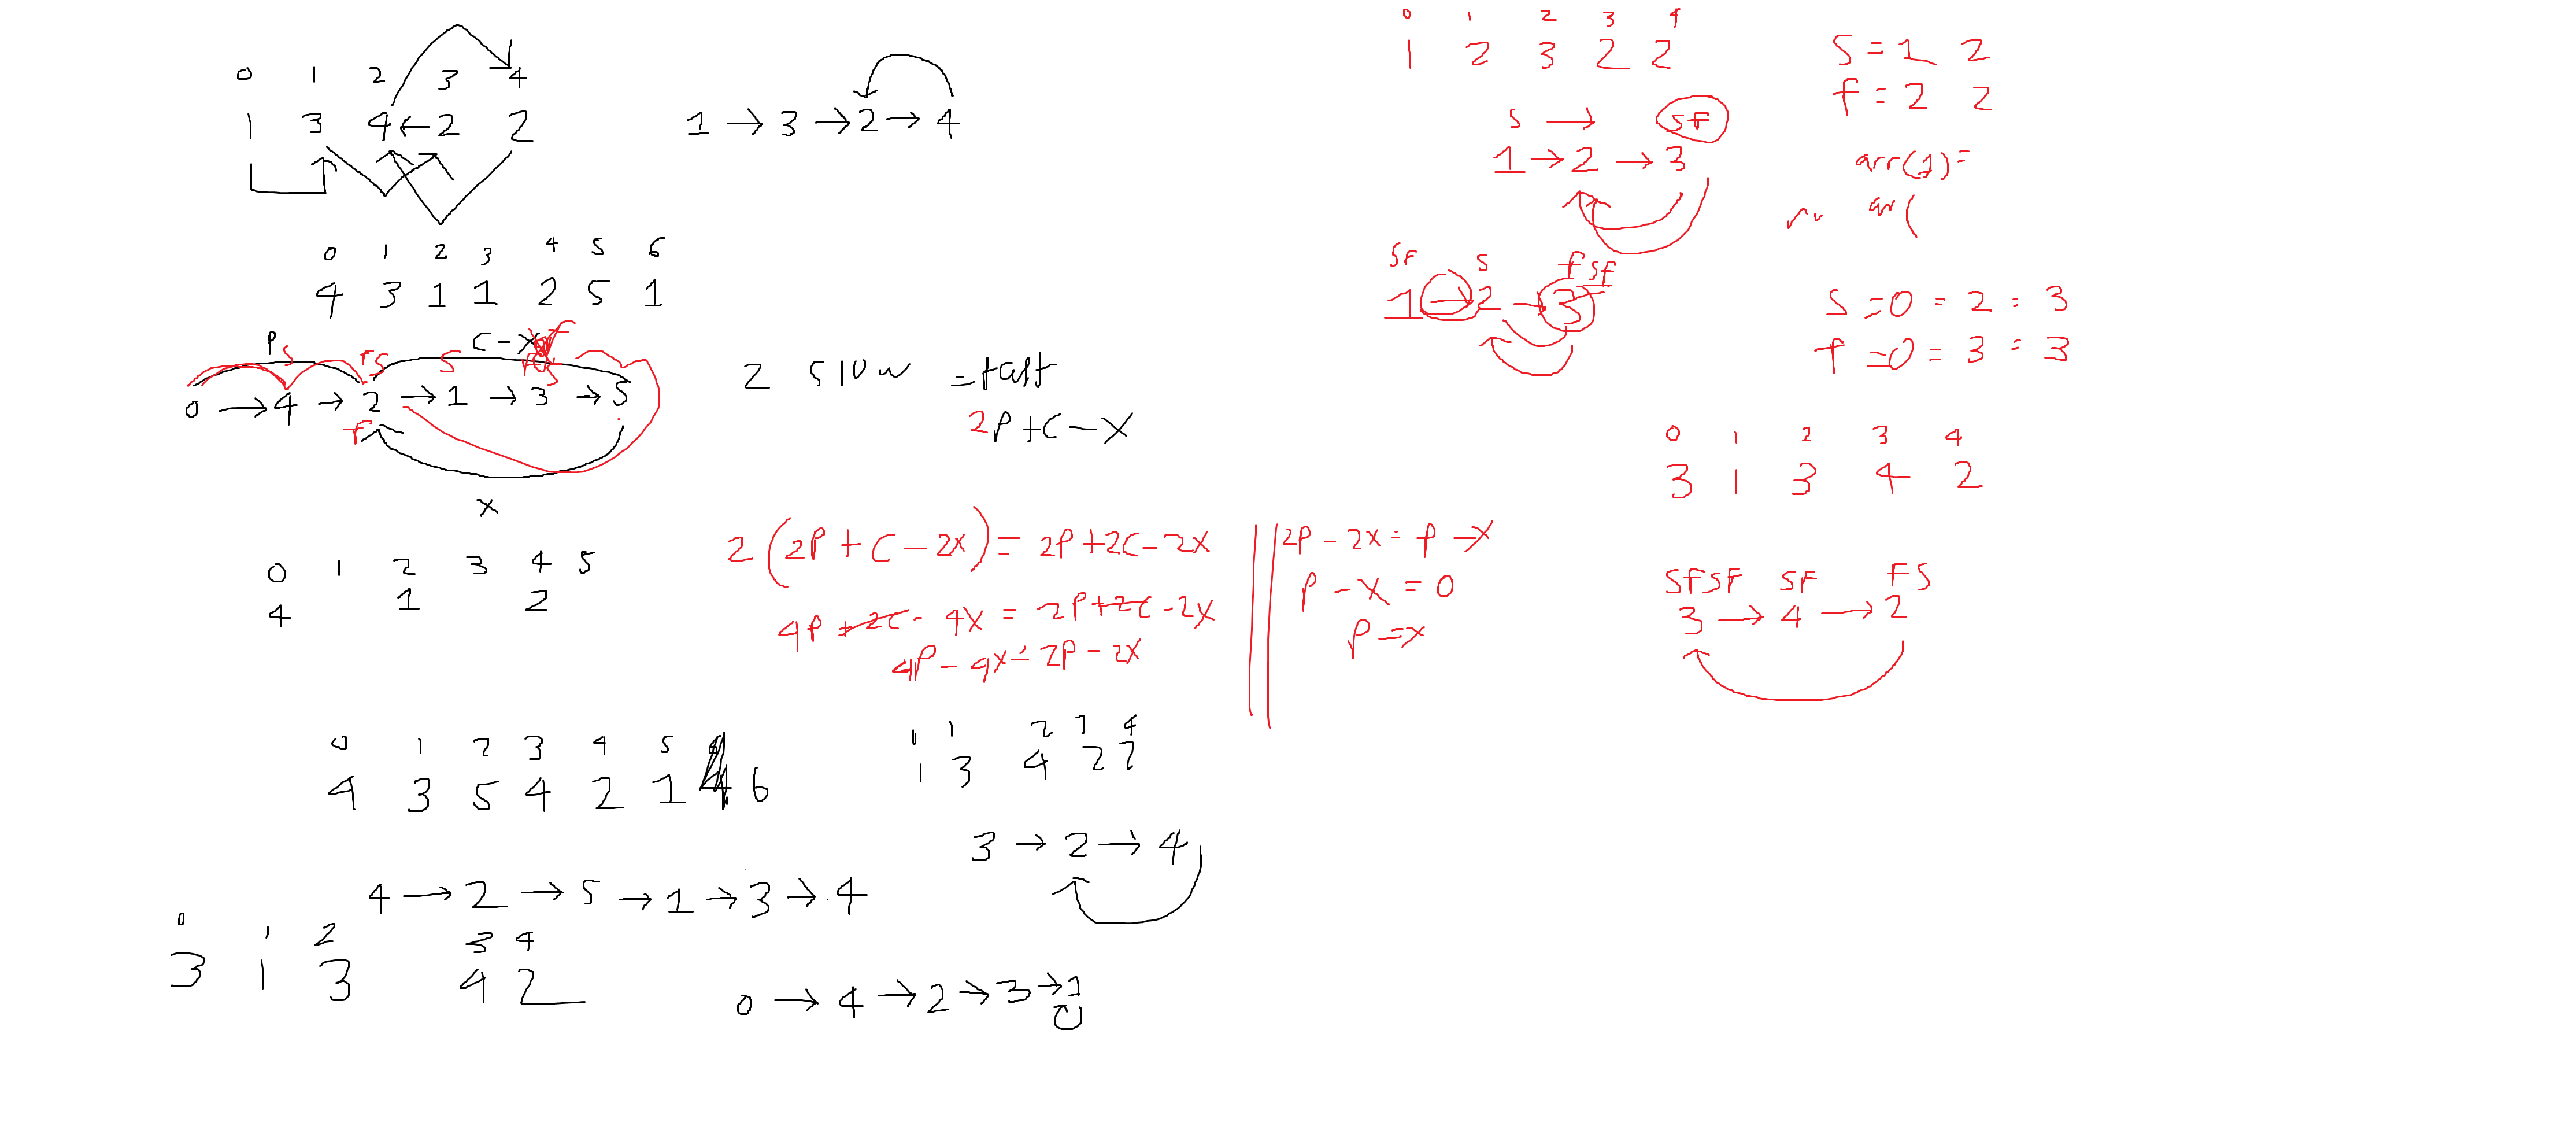 0 1 2 3 4
1 3 4 ← 2 2
1 → 3 → 2 → 4
0 1 2 3 4 5 6
4 3 1 1 2 5 1
P S FS S C - X
0 → 4 → 2 → 1 → 3 → 5
f
x
2 slow = fast
2P + C - X
0 1 2 3 4 5
4 1 2
2(2P + C - 2X) = 2P + 2C - 2X
4P + 2C - 4X = 2P + 2C - 2X
4P - 4X = 2P - 2X
2P - 2X = P - X
P - X = 0
P = X
0 1 2 3 4 5
4 3 5 4 2 1 6
4 → 2 → 5 → 1 → 3 → 4
1 2 3 4
1 3 4 2 2
3 → 2 → 4
0 1 2 3 4
3 1 3 4 2
0 → 4 → 2 → 3 → 1
0 1 2 3 4
1 2 3 2 2
S → SF
1 → 2 → 3
S = 1 2
f = 2 2
arr(1) =
SF S f SF
1 → 2 → 3
S = 0 = 2 = 3
f = 0 = 3 = 3
0 1 2 3 4
3 1 3 4 2
SFSF SF FS
3 → 4 → 2